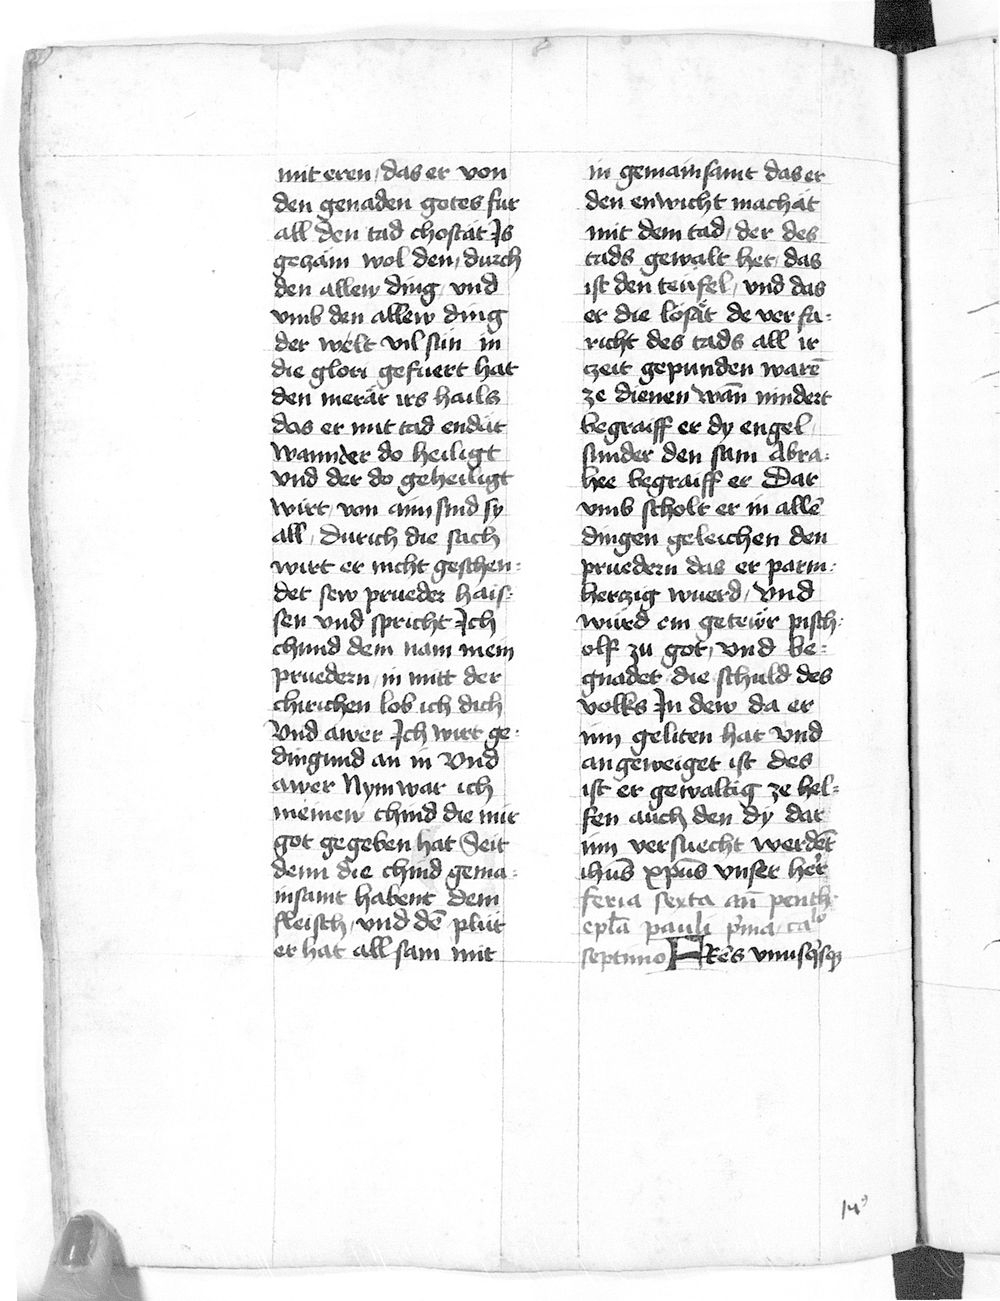 mit eren / das er von
den genaden gotes fur
all den tad chostat Js
gezam wol den / durch
den allew ding / vnd
vmb den allew ding
der welt vil sün in
die glori gefuert hat
den merär irs hails
das er mit tad endät
wann der do heiligt
vnd der do geheiligt
wirt / von aim sind sy
all / durich die sach
wirt er nicht geschen=
det sew prueder hais=
sen vnd spricht Jch
chünd dem nam mein
pruedern / in mitt der
chirichen lob ich dich
Vnd awer Jch wirt ge=
dingund an in Vnd
awer Nym war ich
meinew chind die mir
got gegeben hat Seit
denn die chind gema=
insamt habent dem
fleisch / vnd dē plüt
er hat all sam mit
in gemainsamt das er
den enwicht machät
mit dem tad / der des
tads gewalt het / das
ist den teüfel / vnd das
er die lösät de ver fa=
richt des tads all ir
czeit gepunden warē
ze dienen wān nindert
begraiff er dy engel /
sunder den sam Abra=
hee begraiff er Dar
vmb scholt er in allē
dingen geleichen den
pruedern das er parm=
herczig wuerd / vnd
würd ein getewr pisch=
olf zu got / vnd be=
gnadet die schuld des
volks Jn dew da er
inn geliten hat vnd
angeweiget ist des
ist er gewaltig ze hel=
fen auch den dy dar
inn versuecht werdēt
ihūs xp̄us vnser her
feria sexta an̄ penth
ep̄la pauli p̓ma / ca͞lo
septimo FRēs vnusq̓sq̓
14⁹